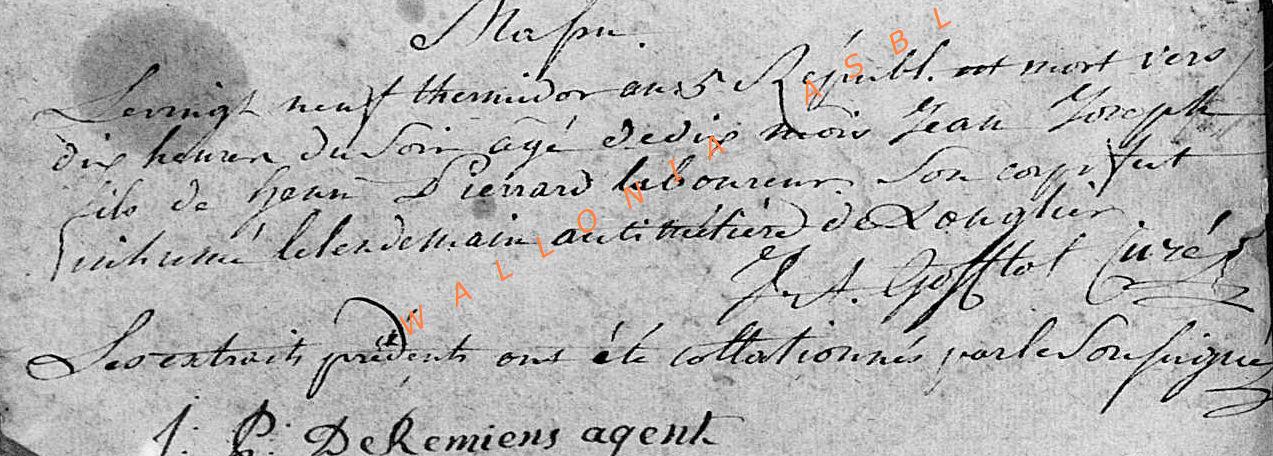 Massu.
Levingt neuf thermidor an 5 Républ. est mort vers
dix heures du Soir agé de dix mois Jean Joseph
fils de Jean Pierrard laboureur. Son corps fut
inhumé lelendemain au cimétière de Longlier.
Curé
Les extraits précédents ont été collationnés par le Soussigné
J: P: DeRemiens agent
WALLONIA ASBL